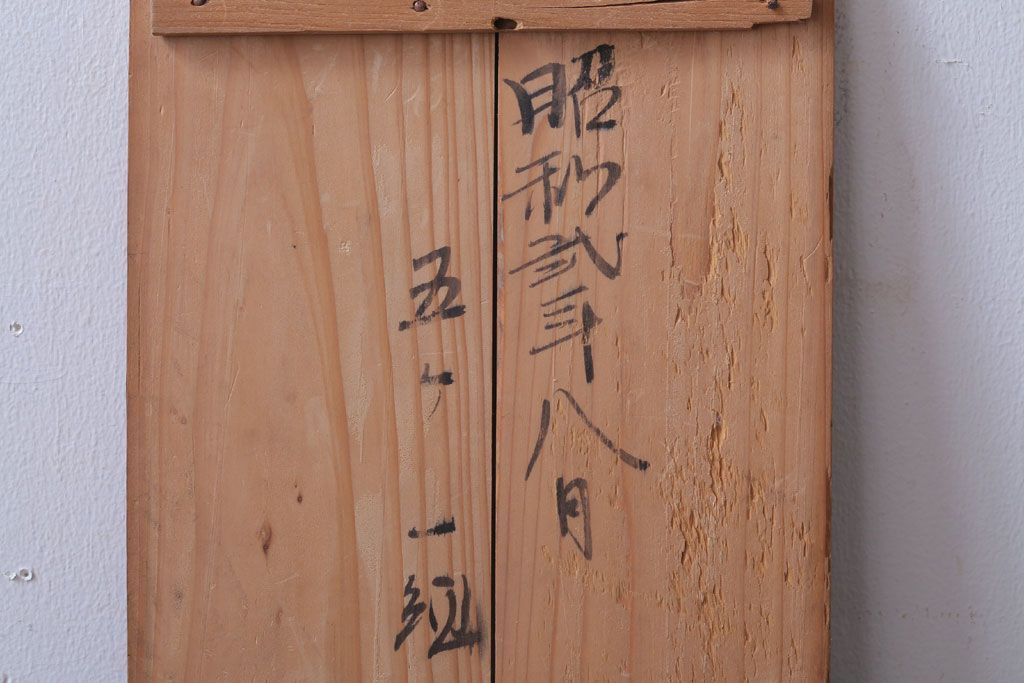 昭和弐年八月
五ヶ一組